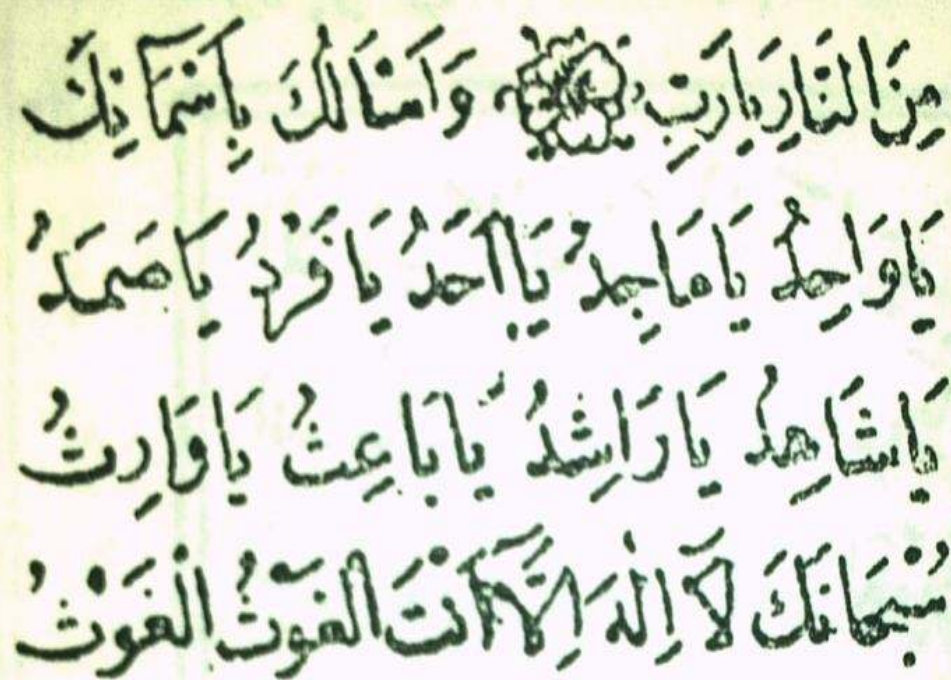 مِنَ النَّارِ يَارَبِّ وَاَسْئَالُكَ بِاَسْمَآئِكَ
يَا وَاحِدُ يَا مَاجِدُ يَا اَحَدُ يَا فَرْدُ يَا صَمَدُ
يَا شَاهِدُ يَا رَاشِدُ يَا بَاعِثُ يَا وَارِثُ
سُبْحَانَكَ لَآ اِلٰهَ اِلَّآ اَنْتَ الْغَوْثُ الْغَوْثُ